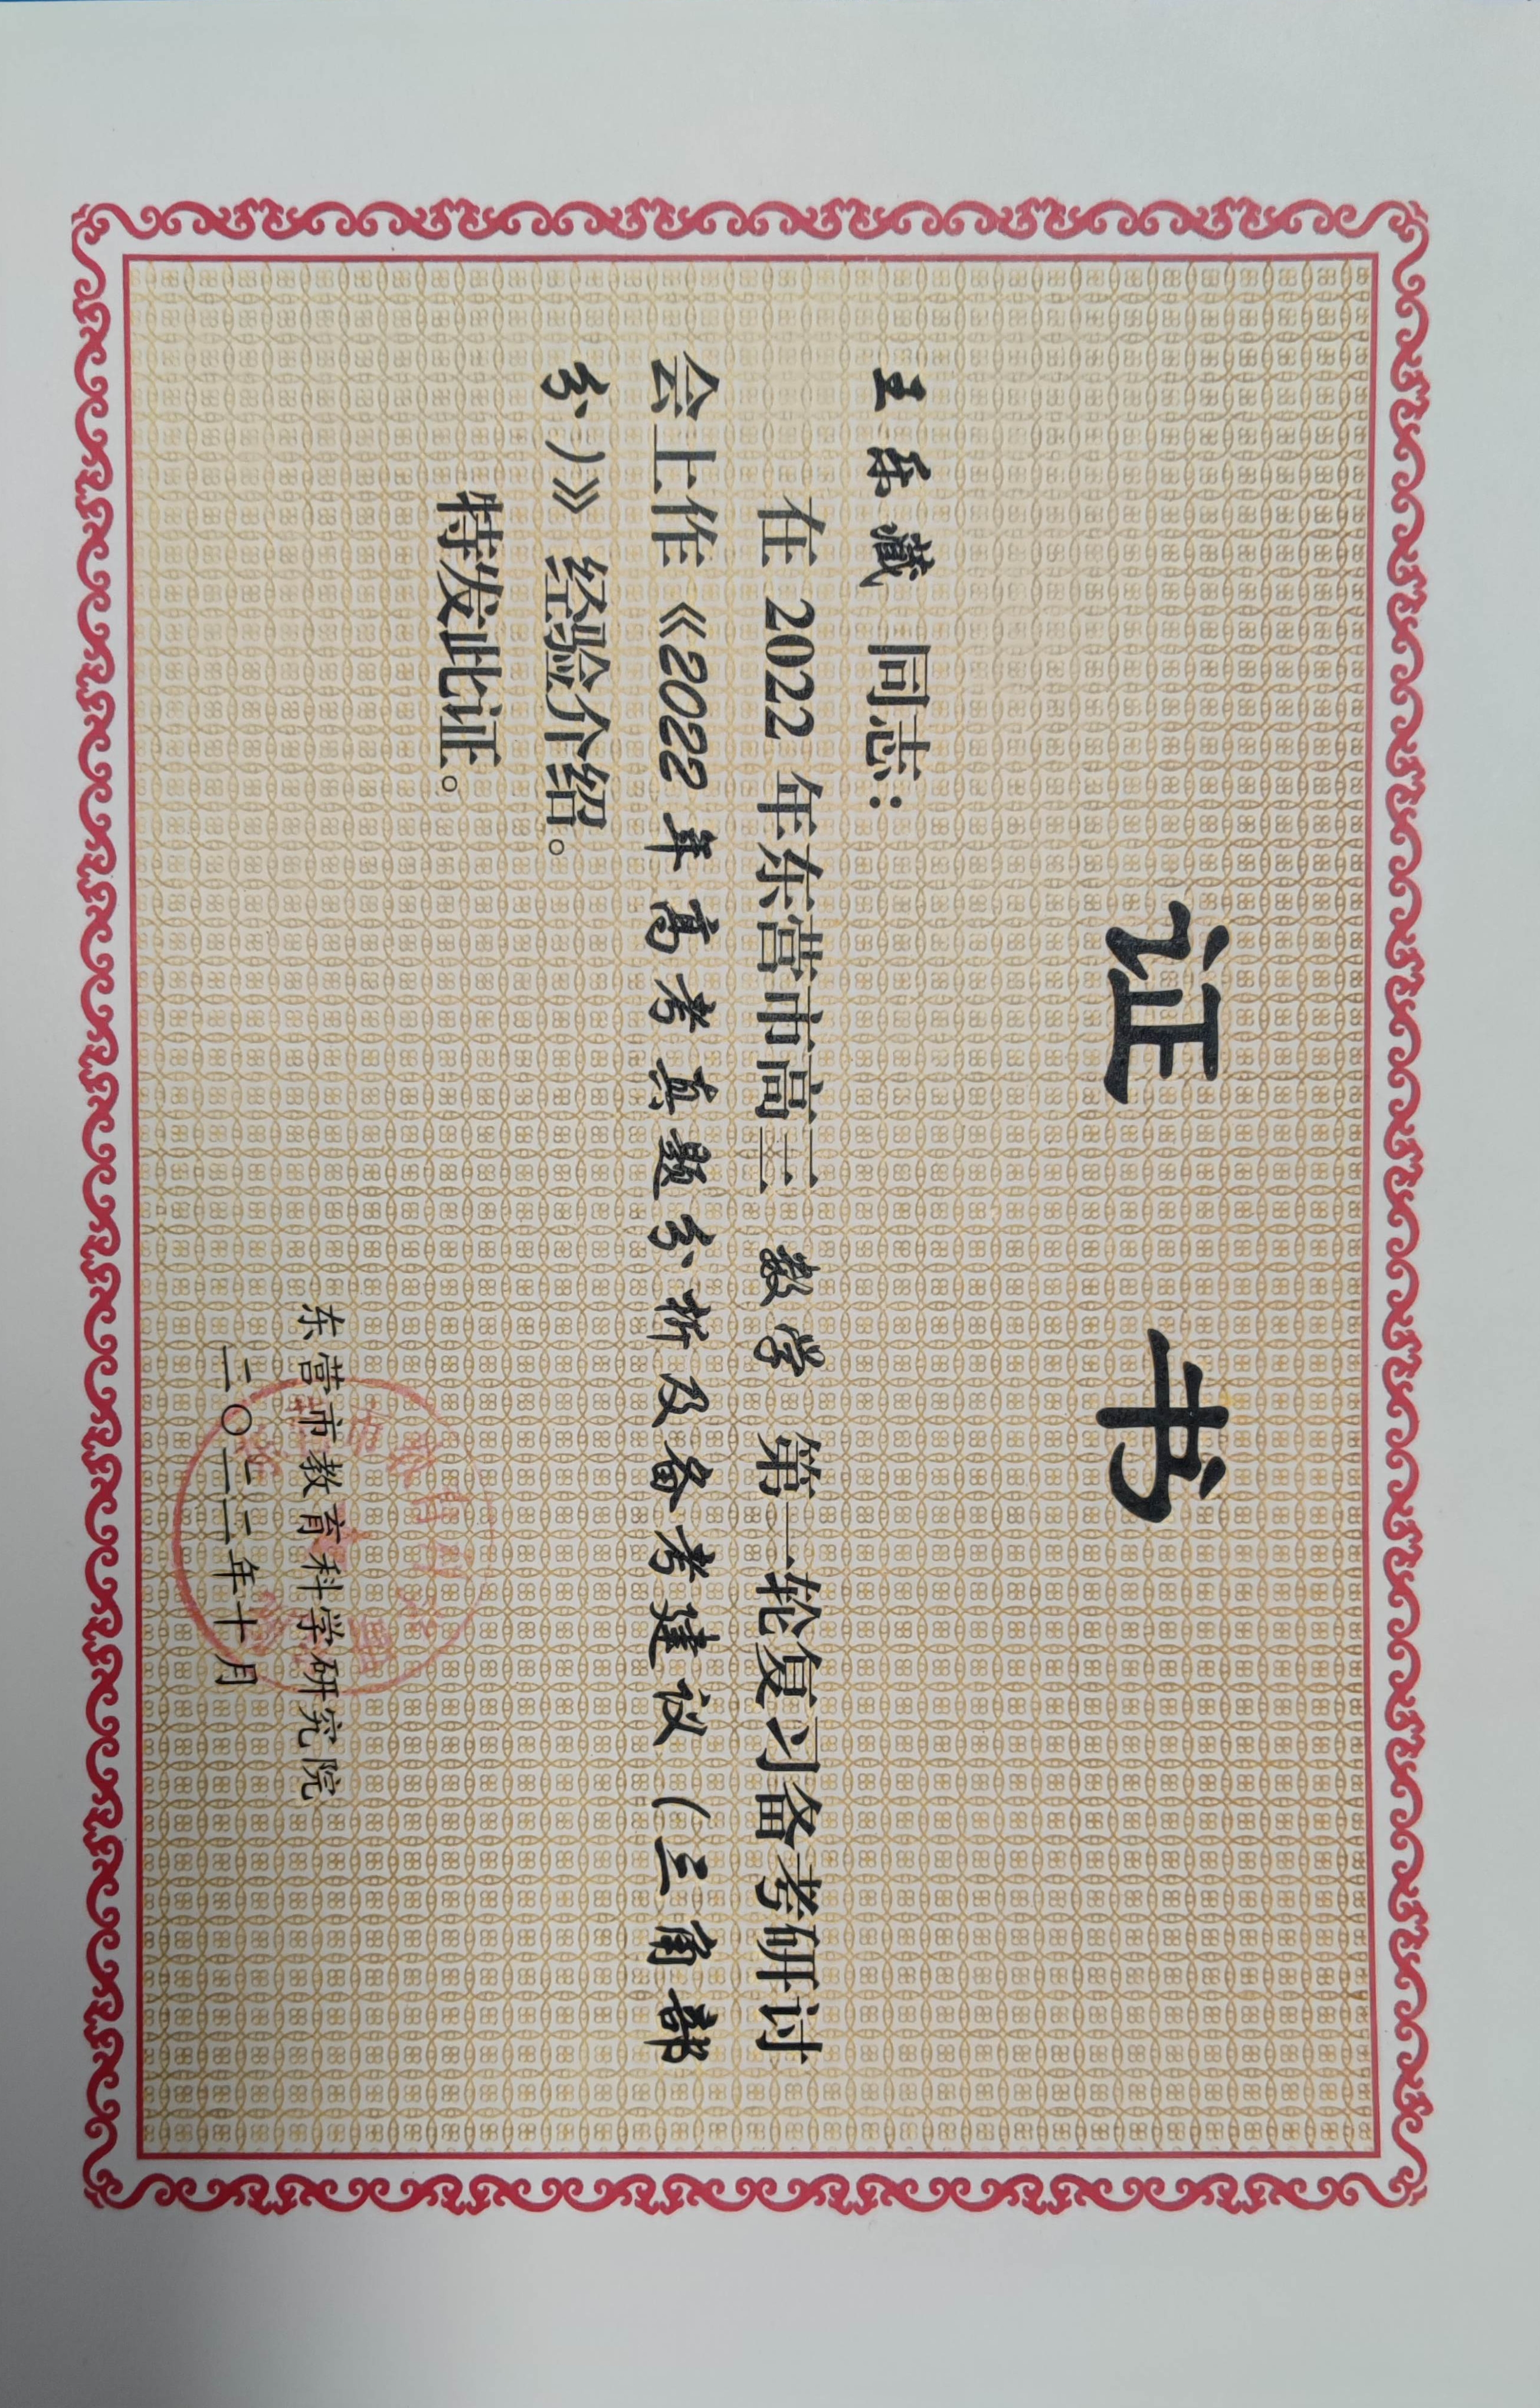 证 书
王乐藏 同志：
在 2022 年东营市高三 数学 第一轮复习备考研讨
会上作《2022年高考真题分析及备考建议（三角部
分）》经验介绍。
特发此证。
东营市教育科学研究院
二〇二二年十月